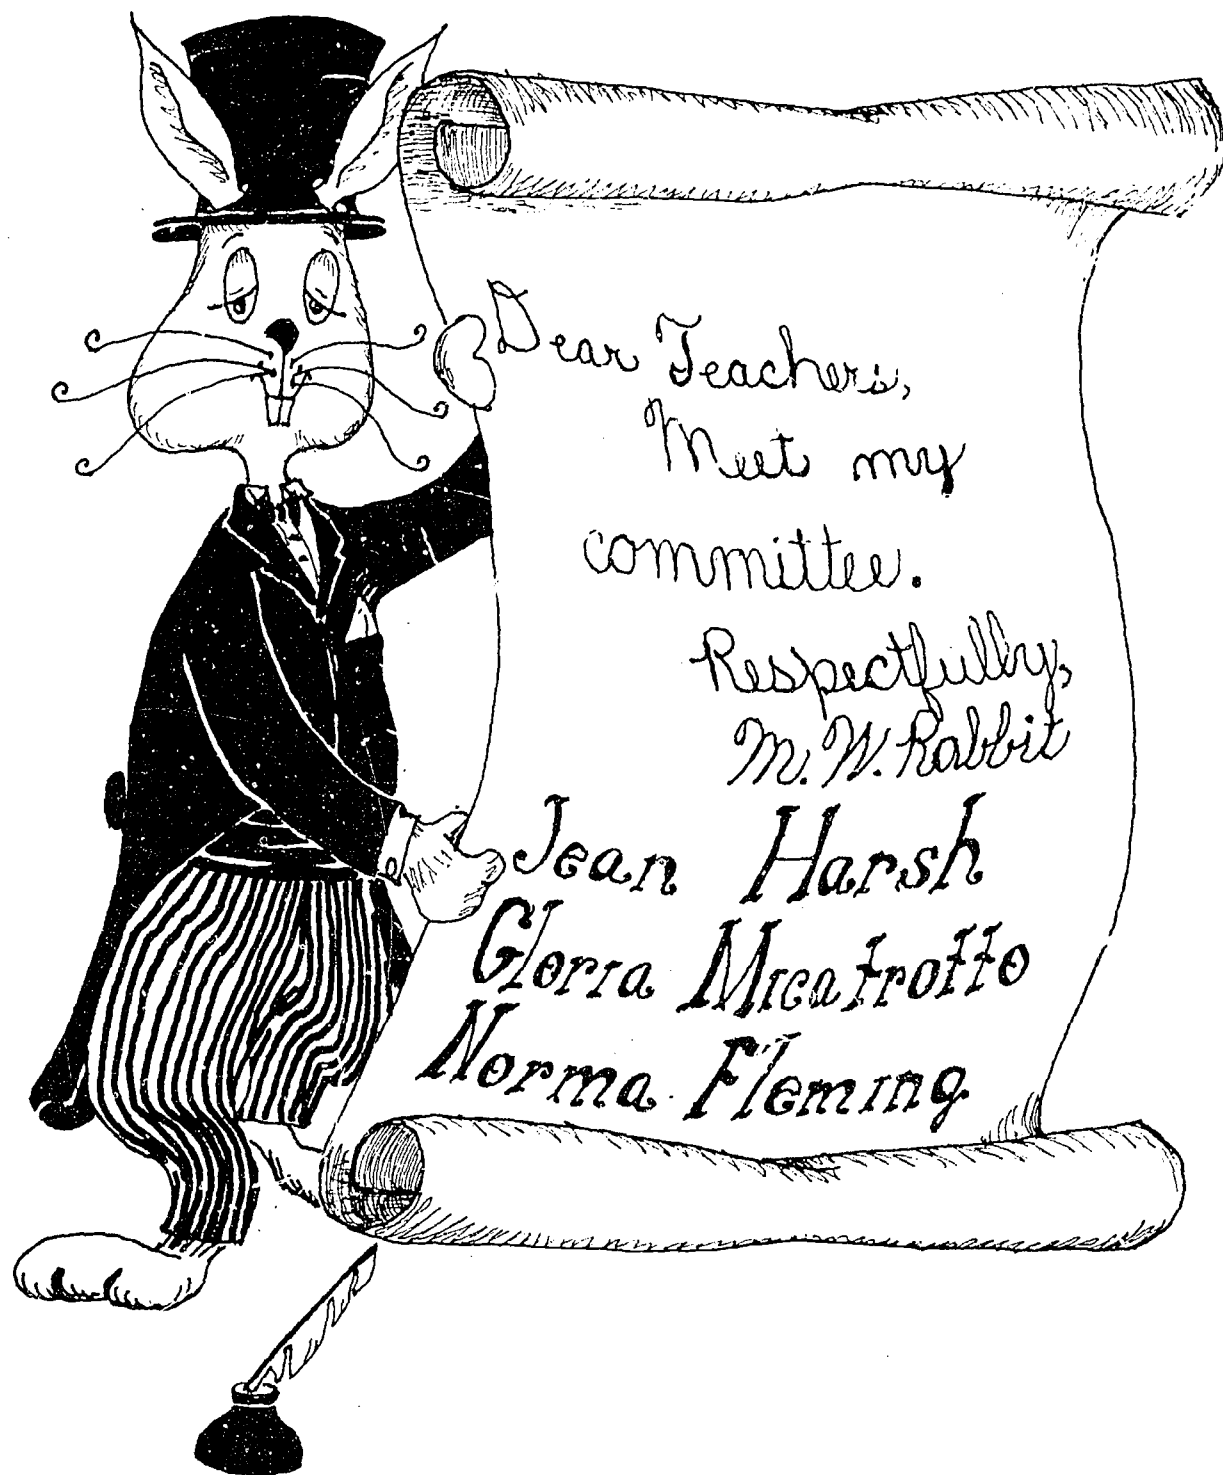 Dear Teachers,
Meet my
committee.
Respectfully,
M. W. Rabbit
Jean Harsh
Gloria Micatrotto
Norma Fleming